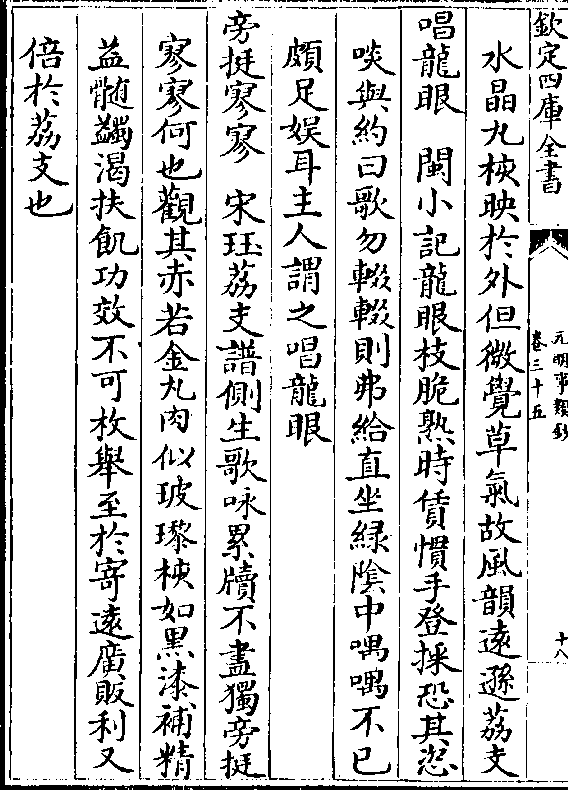 欽定四庫全書
元明事類鈔
卷三十五
十八
水晶丸核映於外但微覺草氣故風韻遠遜荔支
唱龍眼　閩小記龍眼枝脆熟時賃慣手登採恐其恣
啖與約曰歌勿輟輟則弗給直坐緑隂中喁喁不已
頗足娱耳主人謂之唱龍眼
旁挺寥寥　宋珏荔支譜側生歌咏累牘不盡獨旁挺
寥寥何也觀其赤若金丸肉似玻瓈核如黑漆補精
益髄蠲渴扶飢功效不可枚舉至於寄遠廣販利又
倍於荔支也